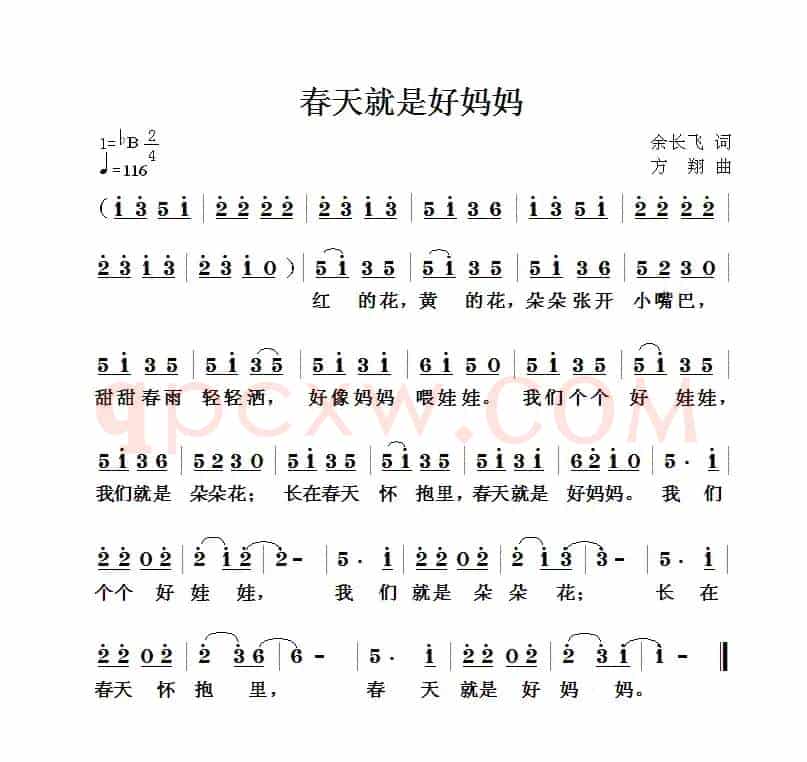 春天就是好妈妈
1=♭B 2/4
余长飞 词
♩=116
方 翔 曲
(i̇ 3̇ 5 i̇ | 2̇ 2̇ 2̇ 2̇ | 2̇ 3̇ i̇ 3̇ | 5 i̇ 3 6 | i̇ 3̇ 5 i̇ | 2̇ 2̇ 2̇ 2̇ |
2̇ 3̇ i̇ 3̇ | 2̇ 3̇ i̇ 0 ) | 5 i̇ 3 5 | 5 i̇ 3 5 | 5 i̇ 3 6 | 5 2 3 0 |
红 的花，黄 的花，朵朵张开 小嘴巴，
5 i̇ 3 5 | 5 i̇ 3 5 | 5 i̇ 3 i̇ | 6 i̇ 5 0 | 5 i̇ 3 5 | 5 i̇ 3 5 |
甜甜春雨 轻轻洒， 好像妈妈 喂娃娃。 我们个个 好 娃娃，
qpcxw.COM
5 i̇ 3 6 | 5 2 3 0 | 5 i̇ 3 5 | 5 i̇ 3 5 | 5 i̇ 3 i̇ | 6 2̇ i̇ 0 | 5· i̇ |
我们就是 朵朵花； 长在春天 怀 抱里，春天就是 好妈妈。 我 们
2̇ 2̇ 0 2̇ | 2̇ i̇ 2̇ | 2̇ - | 5· i̇ | 2̇ 2̇ 0 2̇ | 2̇ i̇ 3̇ | 3̇ - | 5· i̇ |
个个 好 娃 娃， 我 们 就是 朵 朵 花； 长 在
2̇ 2̇ 0 2̇ | 2̇ 3̇ 6 | 6 - | 5· i̇ | 2̇ 2̇ 0 2̇ | 2̇ 3̇ i̇ | i̇ - ‖
春天 怀 抱 里， 春 天 就是 好 妈 妈。